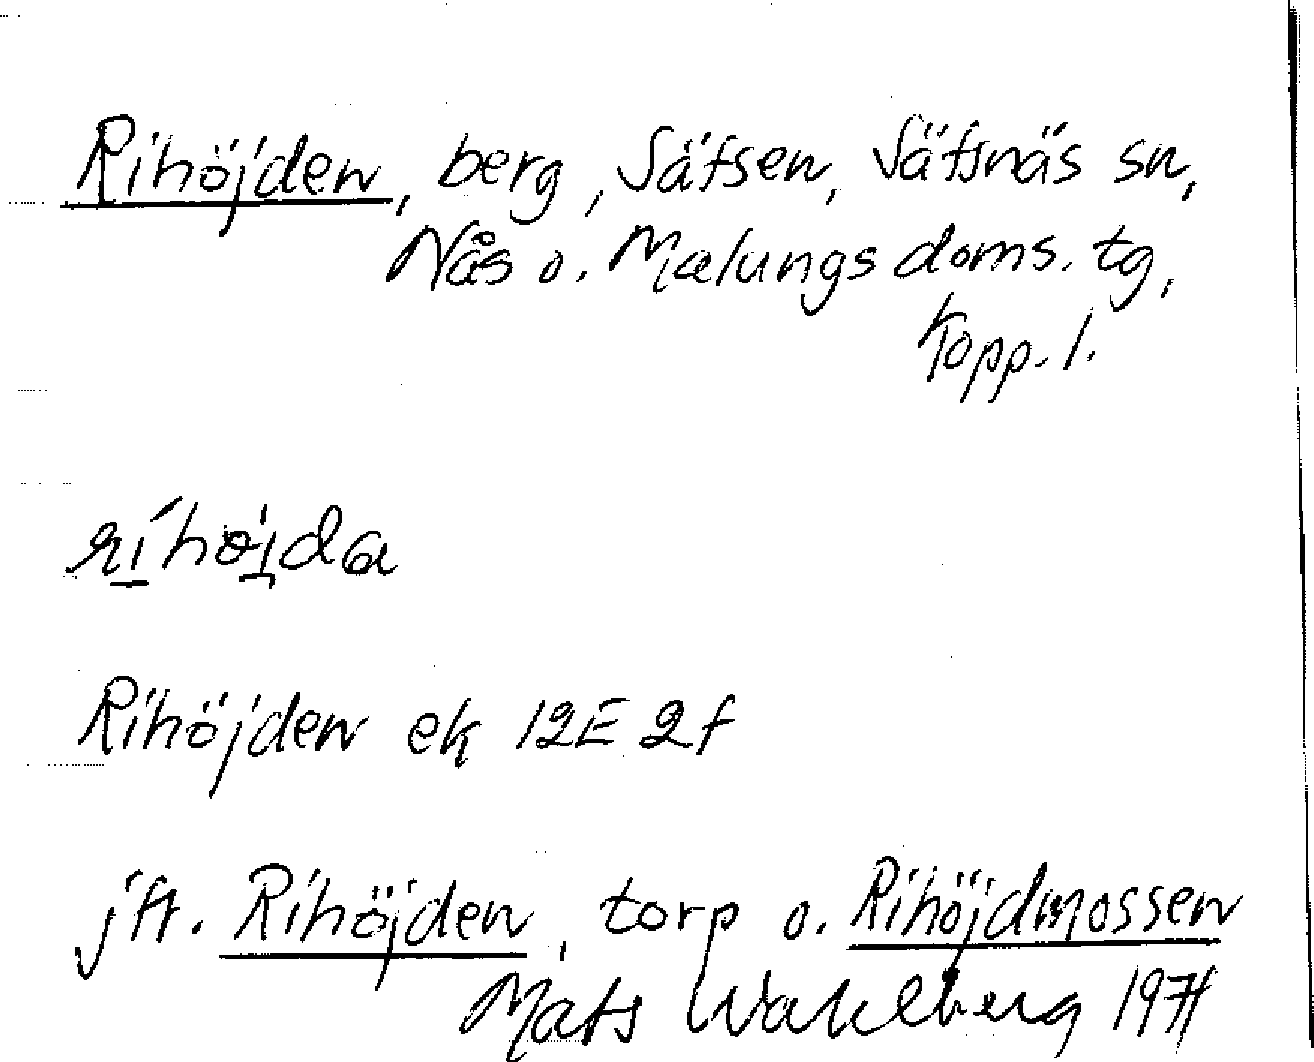 Rihöjden, berg, Säfsen, Säfsnäs sn,
Nås o. Malungs doms. tg,
Kopp. l.
ríhøjda
Rihöjden ek 12E 2f
jfr. Rihöjden, torp o. Rihöjdmossen
Mats Wahlberg 1971